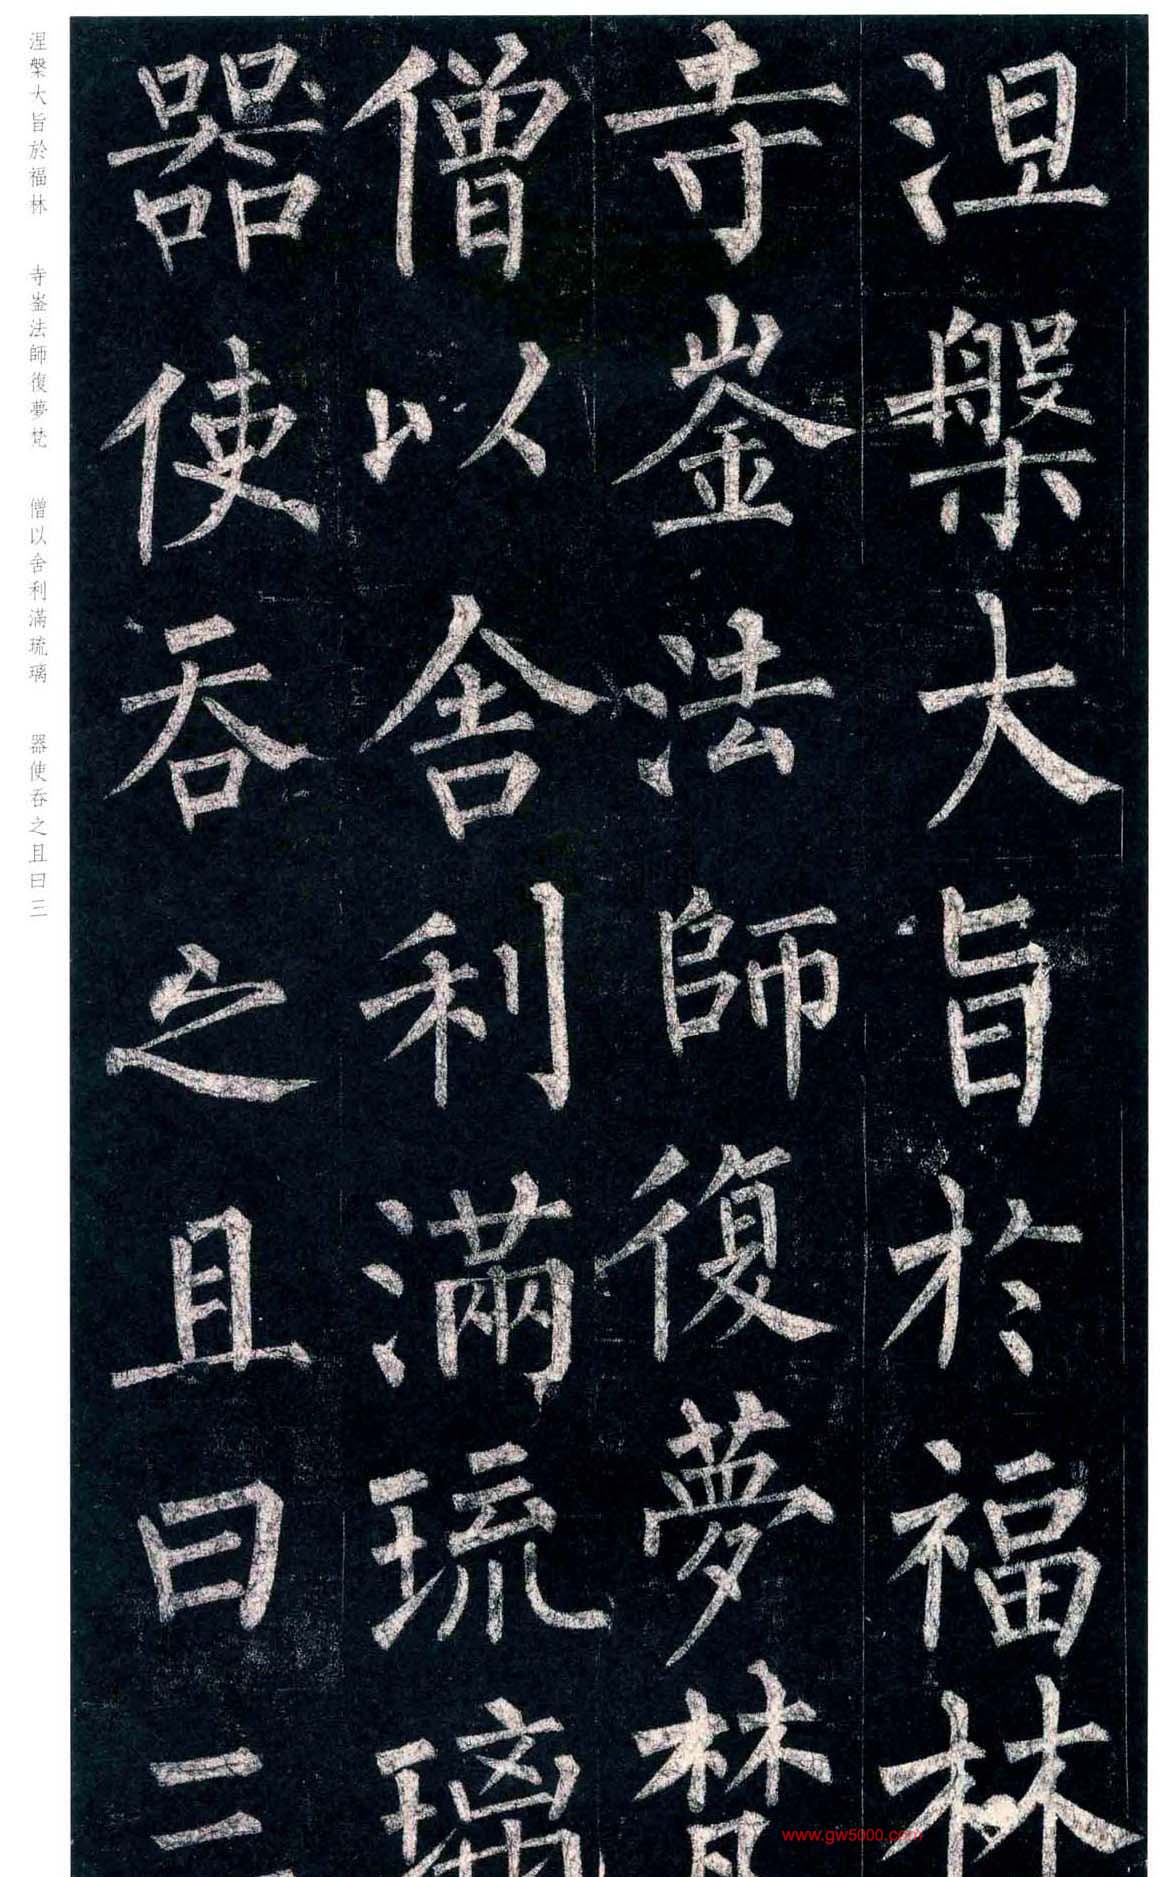 涅槃大旨於福林
寺崟法師復夢梵
僧以舍利滿琉璃
器使吞之且曰三
涅槃大旨於福林　寺崟法師復夢梵　僧以舍利滿琉璃　器使吞之且曰三
www.gw5000.com